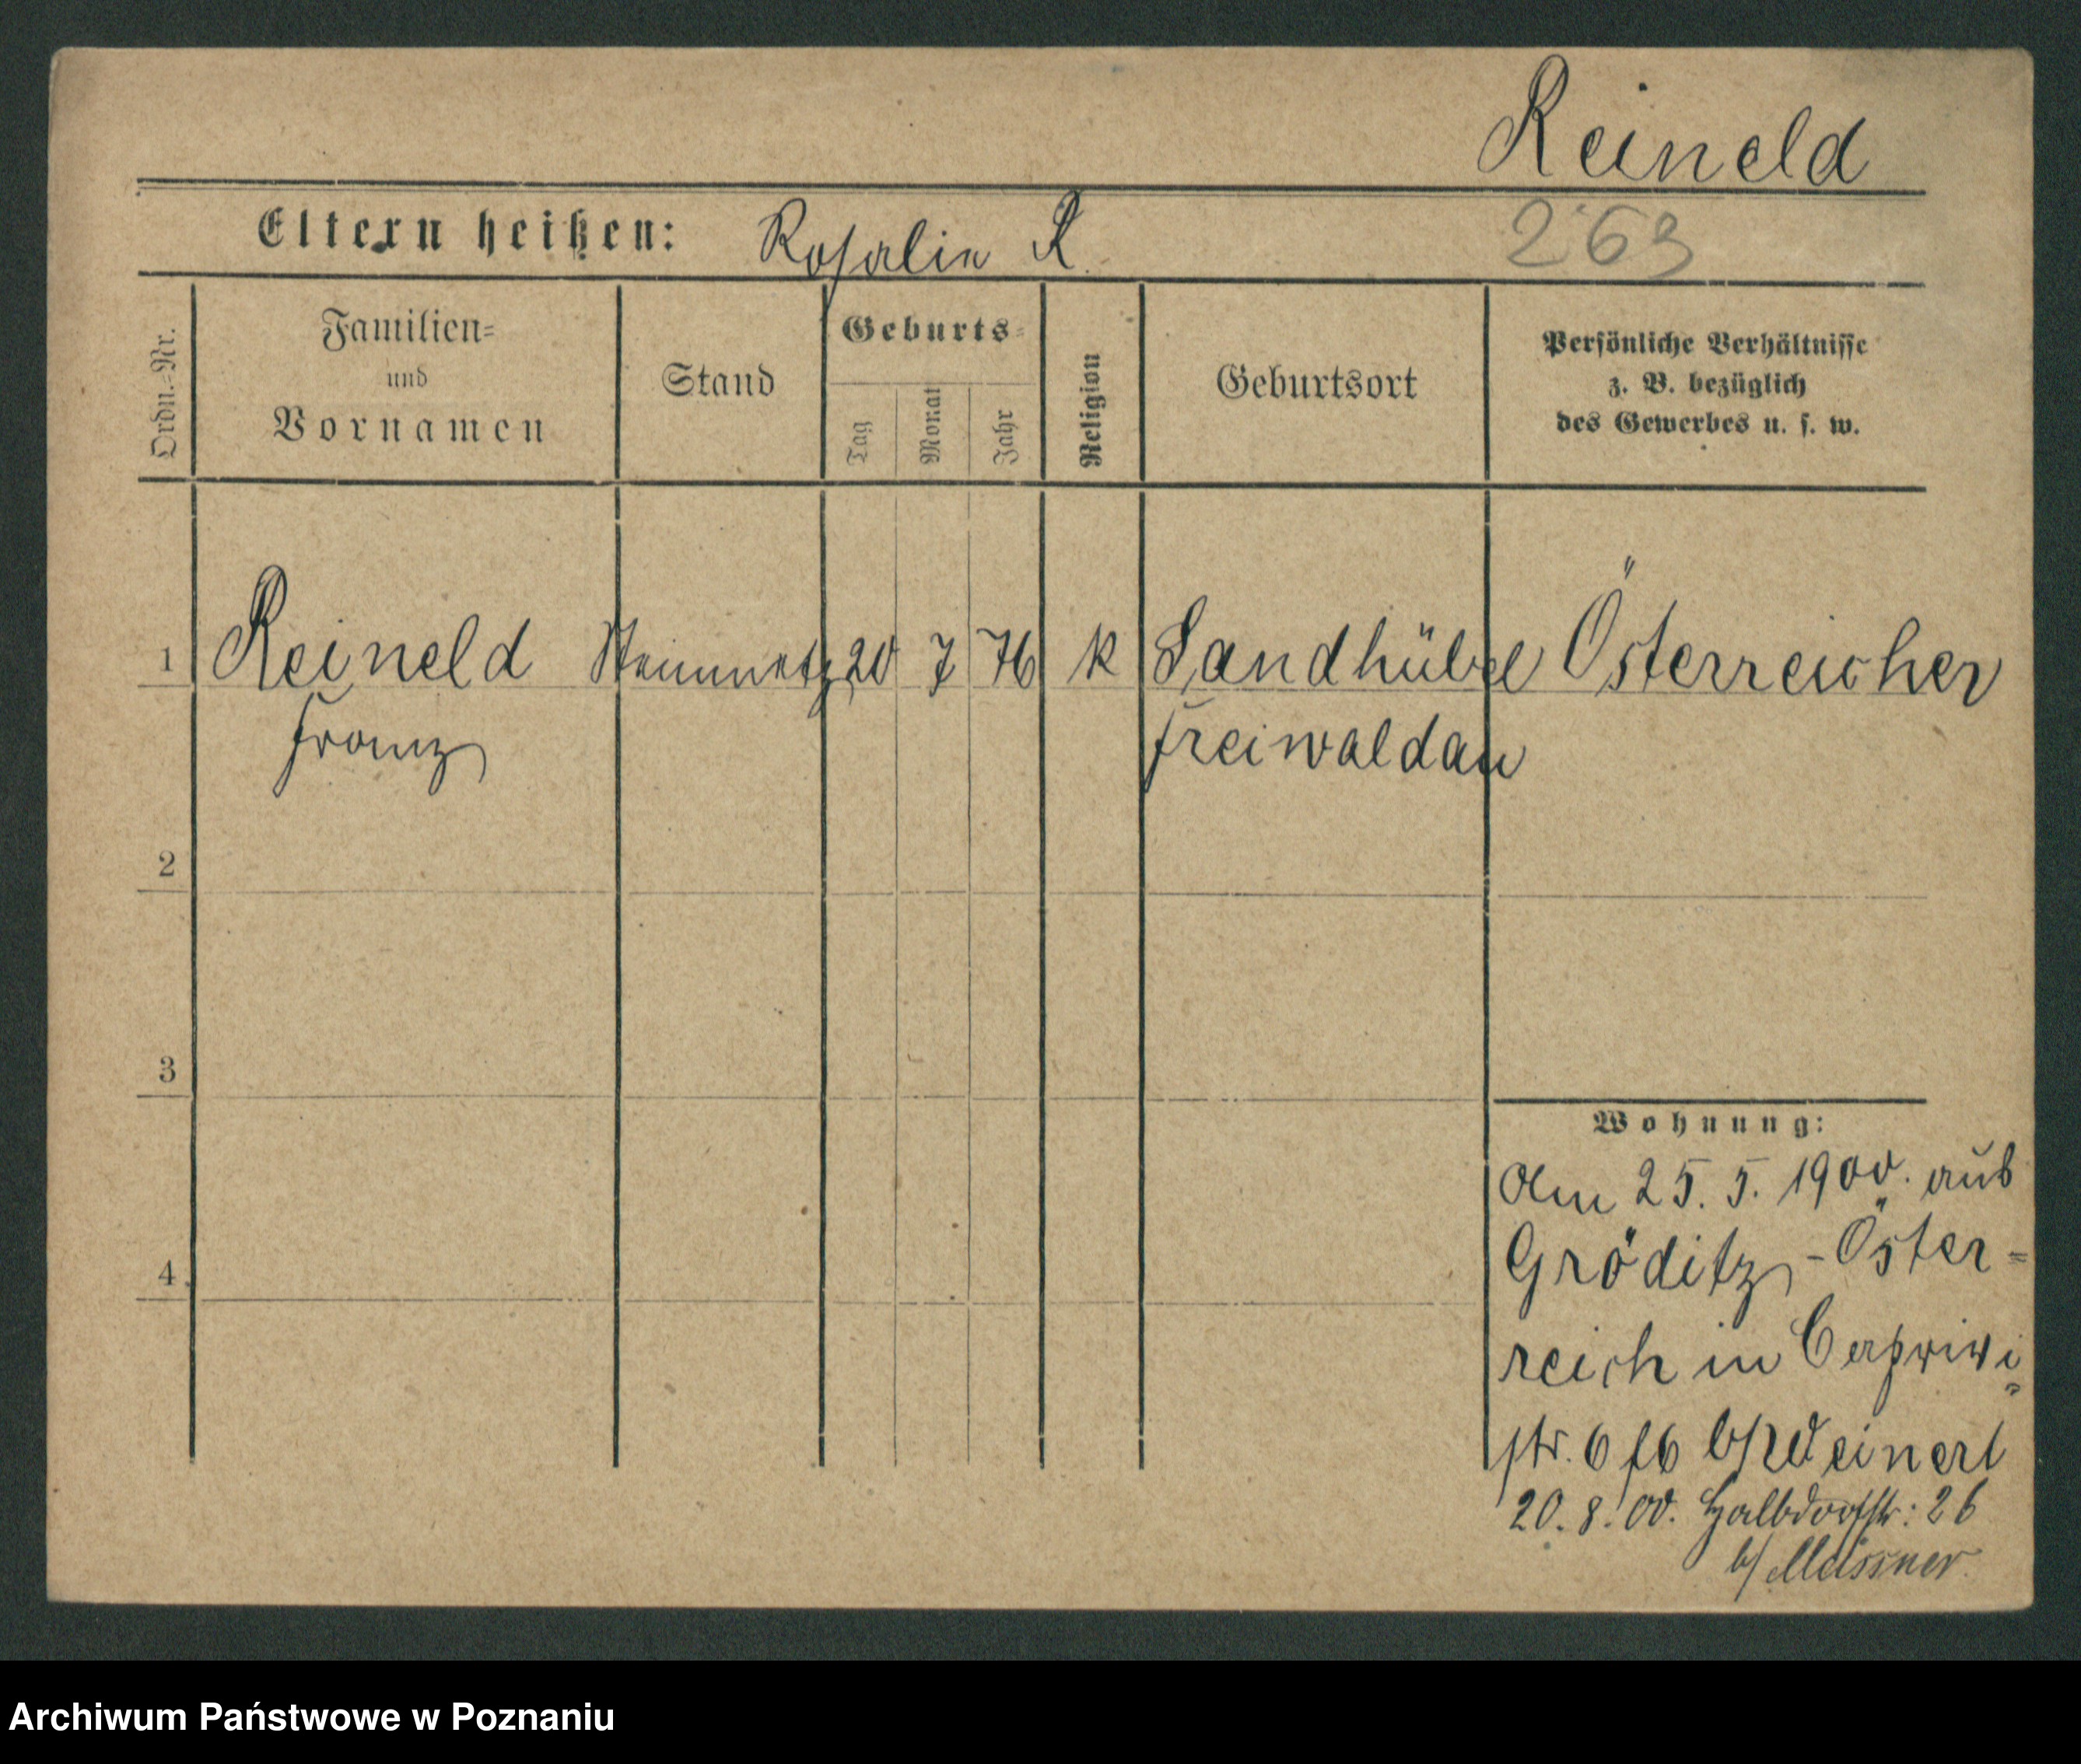 Reineld
Eltern heißen: Rosalie R.
263
Ordn.-Nr.
Familien-
und
Vornamen
Stand
Geburts-
Tag
Monat
Jahr
Religion
Geburtsort
Persönliche Verhältnisse
z. B. bezüglich
des Gewerbes u. s. w.
1 Reineld Steinmetz 20 7 76 k Sandhübel Österreicher
Franz Freiwaldau
2
3
Wohnung:
Am 25. 5. 1900. aus
Gröditz - Öster=
4
reich in Caprivi=
str. 6 b/ Weinert
20. 8. 00. Halbdorfstr: 26
b/ Meissner.
Archiwum Państwowe w Poznaniu